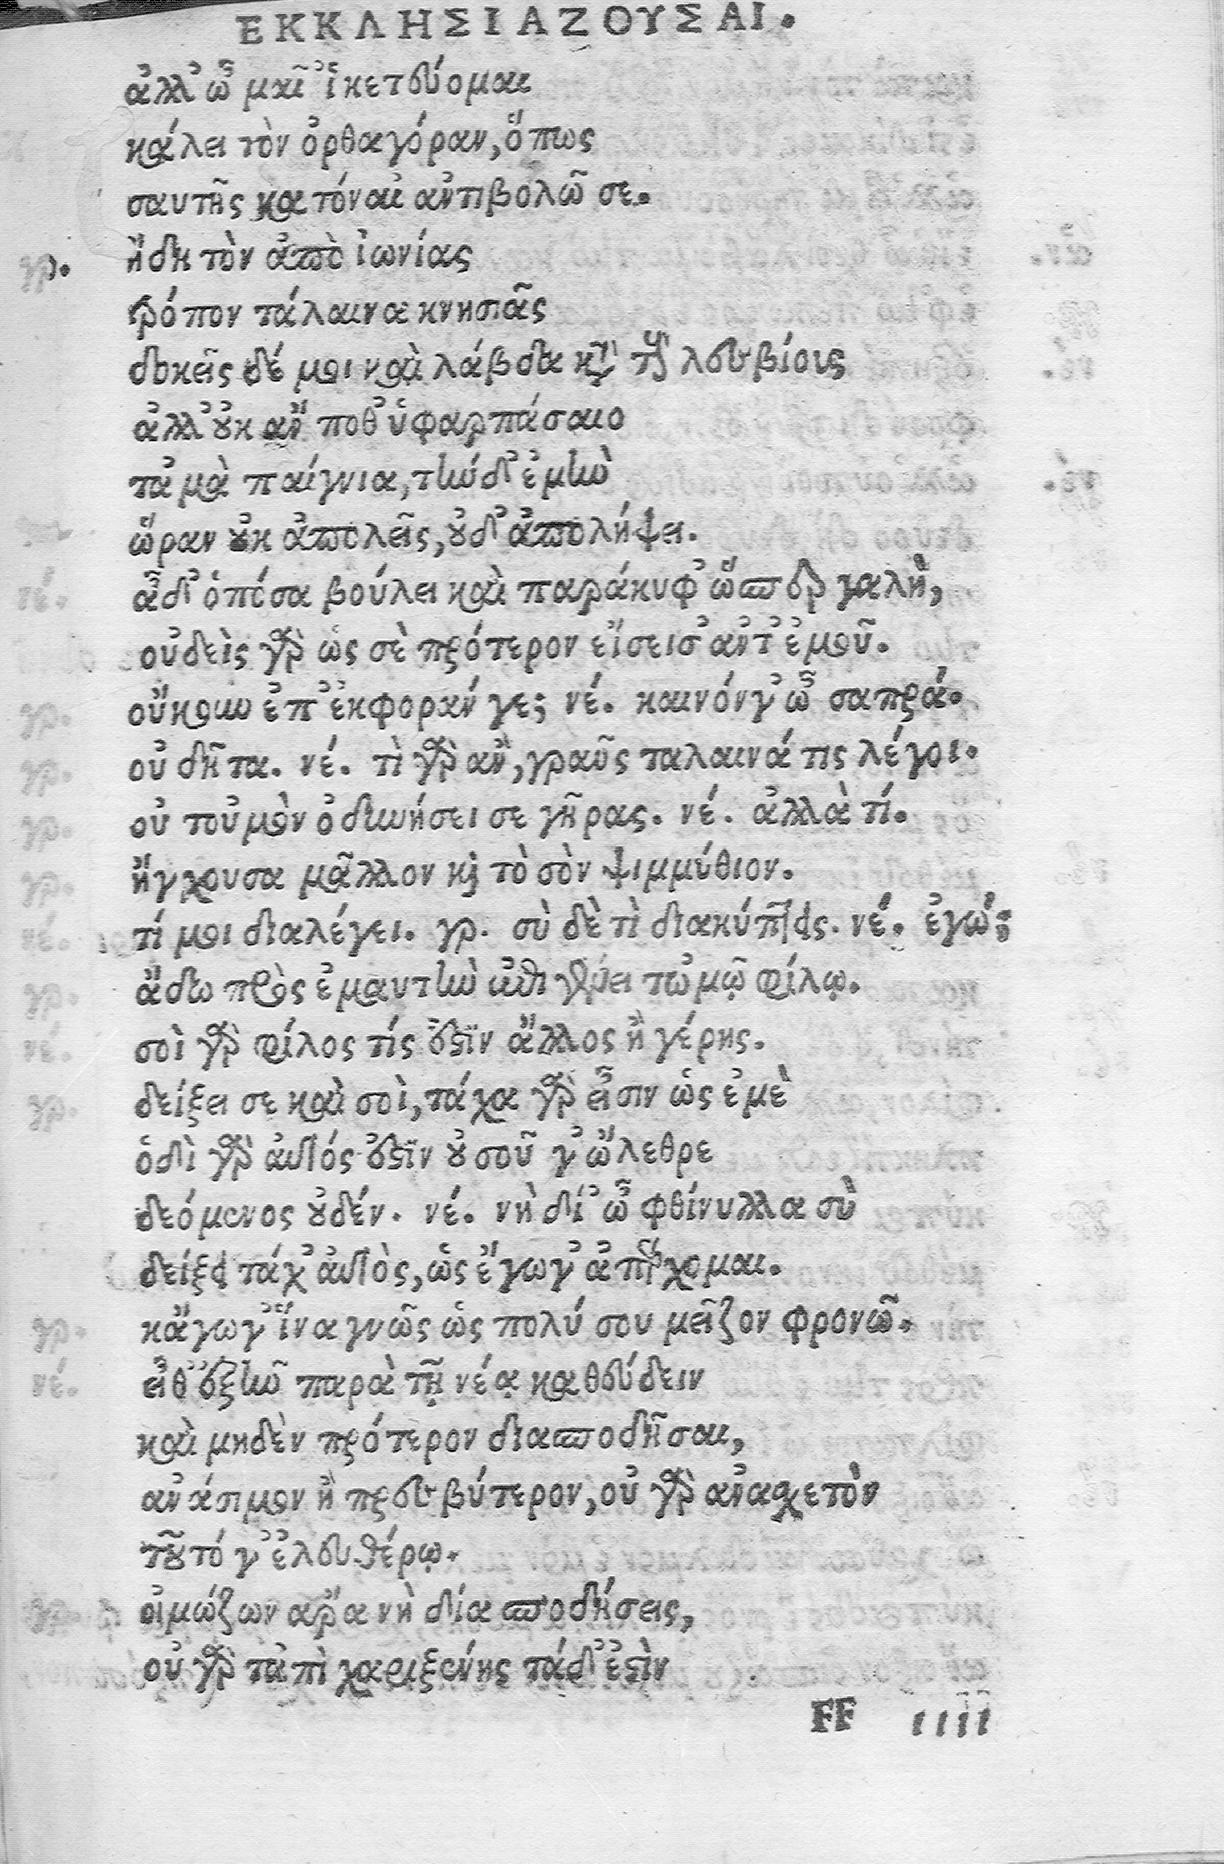 ΕΚΚΛΗΣΙΑΖΟΥΣΑΙ.
ἀλλ' ὦ μαῖ' ἱκετεύομαι
κάλει τὸν ὀρθαγόραν, ὅπως
σαυτῆς κατόναι ἀντιβολῶ σε.
γρ. ἤδη τὸν ἀπὸ ἰωνίας
τρόπον τάλαινα κνησιᾶς
δοκεῖς δέ μοι καὶ λάβδα κατὰ τοὺς λεσβίους
ἀλλ' οὐκ ἄν ποθ' ὑφαρπάσαιο
τἀμὰ παίγνια, τὴν δ' ἐμὴν
ὥραν οὐκ ἀπολεῖς, οὐδ' ἀπολήψει.
ᾆδ' ὁπόσα βούλει καὶ παράκυφ' ὥσπερ γαλῆ,
οὐδεὶς γὰρ ὡς σὲ πρότερον εἴσεισ' ἀντ' ἐμοῦ.
οὔκουν ἐπ' ἐκφοράν γε; νέ. καινόν γ' ὦ σαπρά.
οὐ δῆτα. νέ. τὶ γὰρ ἂν, γραῦς ταλαινά τις λέγοι.
οὐ τοὐμὸν ὀδυνήσει σε γῆρας. νέ. ἀλλὰ τί.
ἤγχουσα μᾶλλον καὶ τὸ σὸν ψιμμύθιον.
τί μοι διαλέγει. γρ. σὺ δὲ τὶ διακύπτεις. νέ. ἐγώ;
ᾄδω πρὸς ἐμαυτὴν ἐπιγένει τὠμῷ φίλῳ.
σοὶ γὰρ φίλος τίς ἐστὶν ἄλλος ἢ γέρης.
δείξει σε καὶ σοὶ, τάχα γὰρ εἶσιν ὡς ἐμὲ
ὁδὶ γὰρ αὐτός ἐστὶν οὐ σοῦ γ' ὤλεθρε
δεόμενος οὐδέν. νέ. νὴ δί' ὦ φθίνυλλα σὺ
δείξει τάχ' αὐτὸς, ὡς ἔγωγ' ἀπέρχομαι.
κἄγωγ' ἵνα γνῶς ὡς πολύ σου μεῖζον φρονῶ.
εἴθ' ἐξῆν παρὰ τῇ νέᾳ καθεύδειν
καὶ μηδὲν πρότερον διασποδῆσαι,
ἀνάσιμον ἢ πρεσβύτερον, οὐ γὰρ ἀνασχετὸν
τοῦτό γ' ἐλευθέρῳ.
οἰμώζων ἄρα νὴ δία σποδήσεις,
οὐ γὰρ τἀπὶ χαριξένης τάδ' ἐστὶν
FF IIII